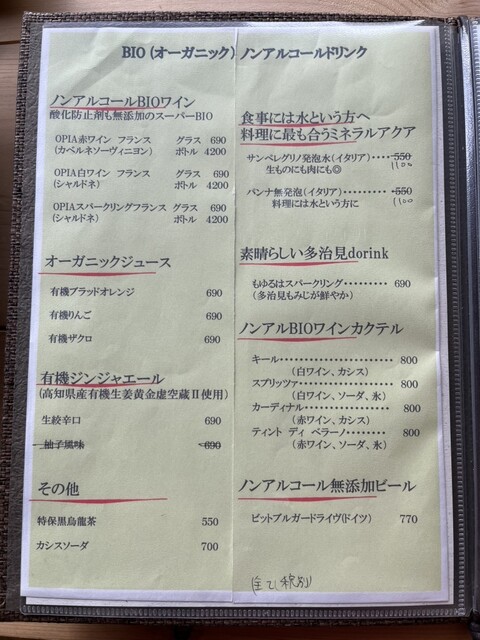 BIO (オーガニック) ノンアルコールドリンク
ノンアルコールBIOワイン
酸化防止剤も無添加のスーパーBIO
OPIA赤ワイン フランス グラス 690
(カベルネソーヴィニヨン) ボトル 4200
OPIA白ワイン フランス グラス 690
(シャルドネ) ボトル 4200
OPIAスパークリングフランス グラス 690
(シャルドネ) ボトル 4200
オーガニックジュース
有機ブラッドオレンジ 690
有機りんご 690
有機ザクロ 690
有機ジンジャエール
(高知県産有機生姜黄金虚空蔵Ⅱ使用)
生絞辛口 690
柚子風味 690
その他
特保黒烏龍茶 550
カシスソーダ 700
食事には水という方へ
料理に最も合うミネラルアクア
サンペレグリノ発泡水(イタリア)‥‥ 550
生ものにも肉にも◎ 1100
パンナ無発泡(イタリア)‥‥‥‥ 550
料理には水という方に 1100
素晴らしい多治見dorink
もゆるはスパークリング‥‥‥‥‥ 690
(多治見もみじが鮮やか)
ノンアルBIOワインカクテル
キール‥‥‥‥‥‥‥‥‥‥ 800
(白ワイン、カシス)
スプリッツァ‥‥‥‥‥‥‥‥ 800
(白ワイン、ソーダ、氷)
カーディナル‥‥‥‥‥‥‥‥ 800
(赤ワイン、カシス)
ティント ディ ベラーノ‥‥‥‥ 800
(赤ワイン、ソーダ、氷)
ノンアルコール無添加ビール
ビットブルガードライヴ(ドイツ) 770
全て税別